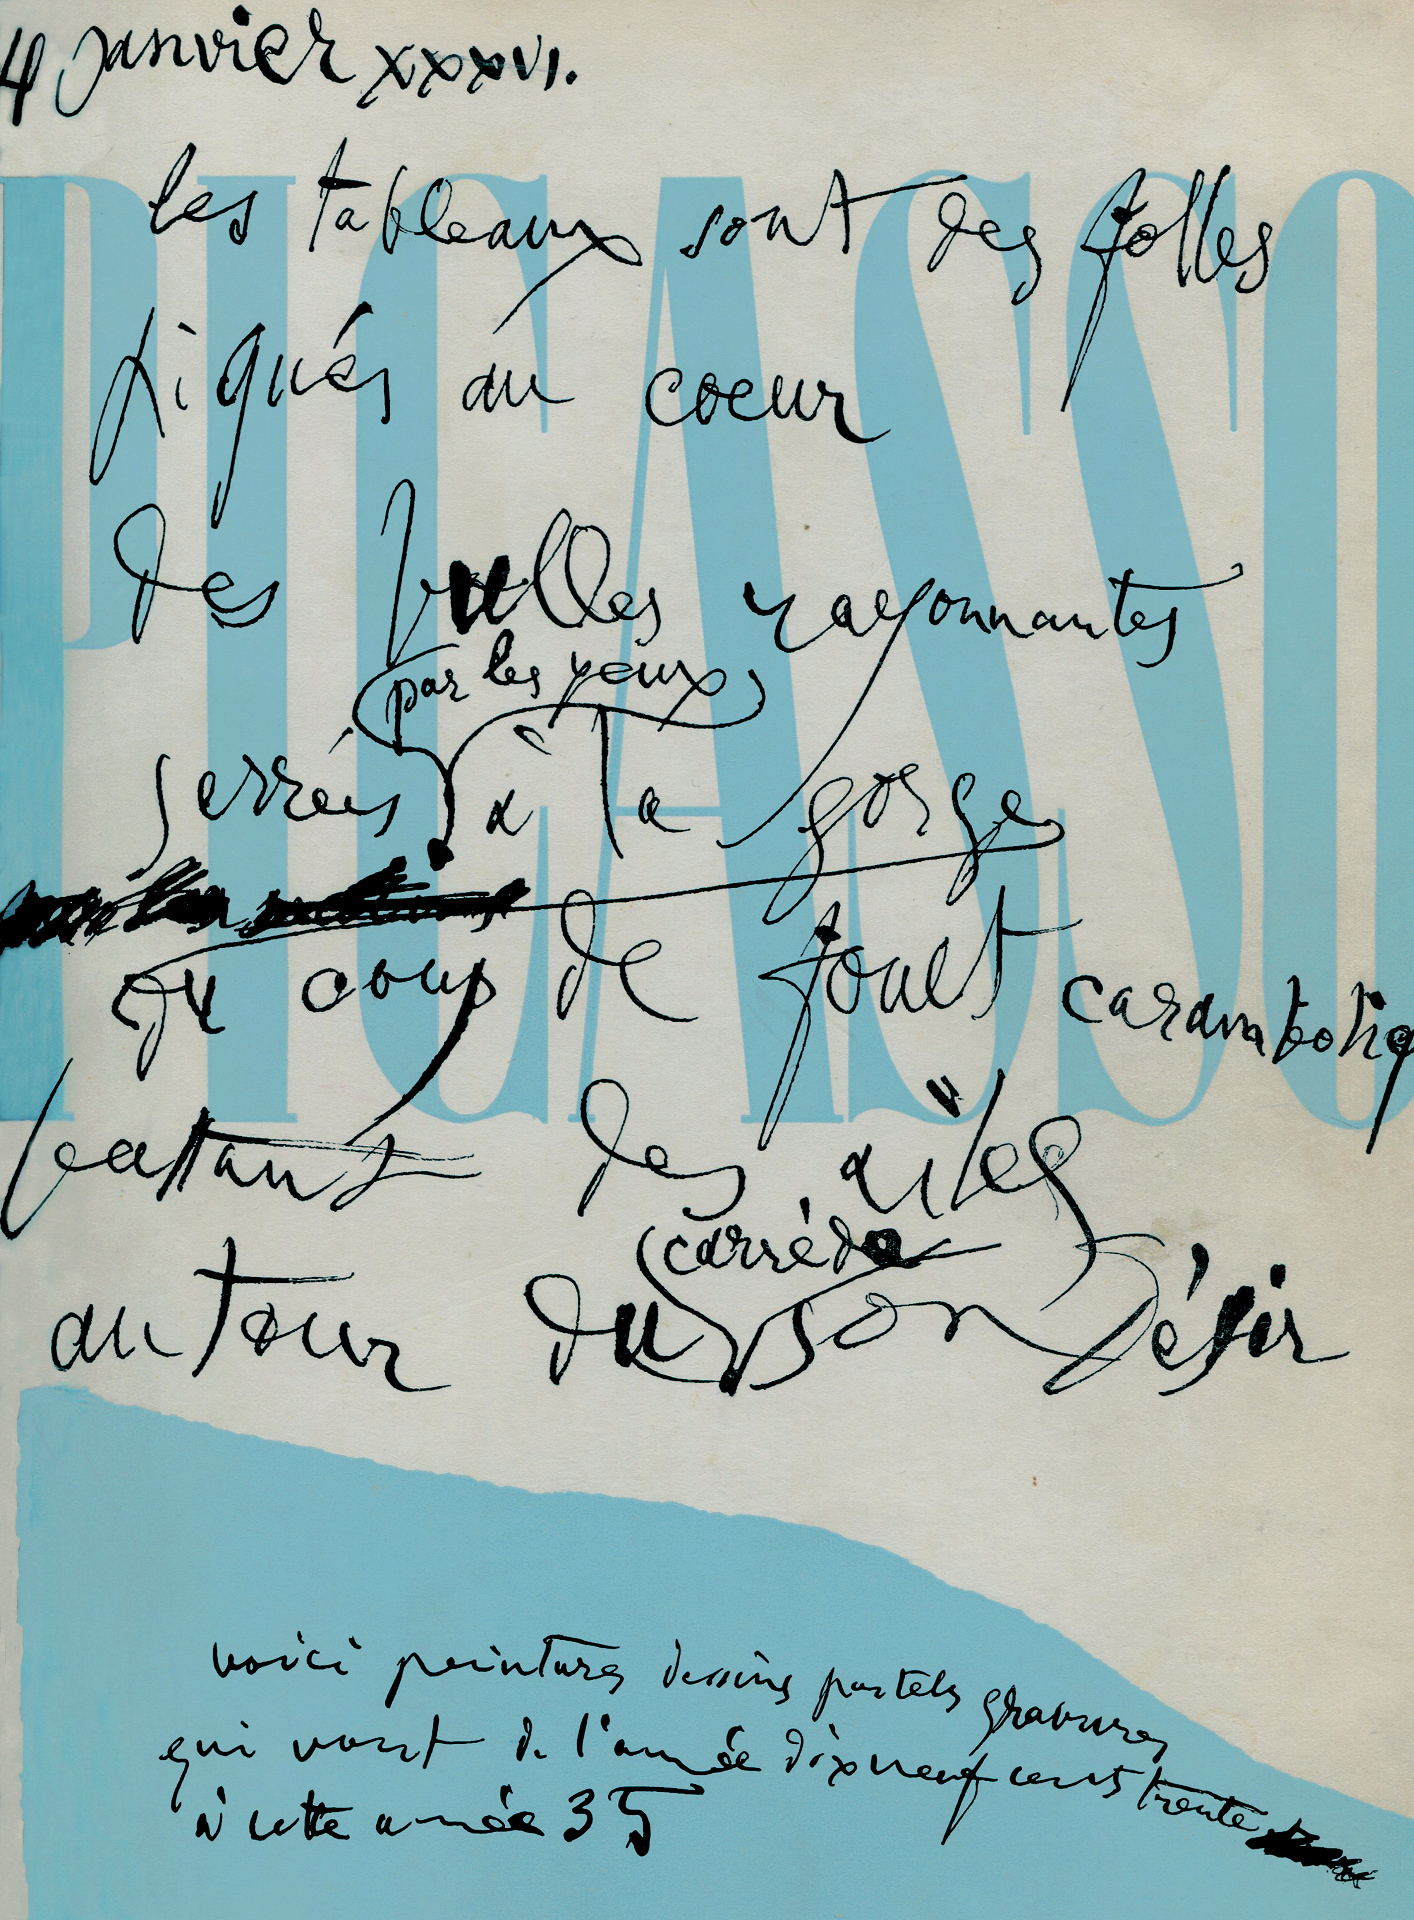 4 janvier XXXVI.
PICASSO
les tableaux sont des folles
piqués au coeur
des bulles rayonnantes
par les yeux
serrées à la gorge
du coup de fouet caramboliq
battant des aîles
autour du son désir
carré de
voici peintures dessins pastels gravures
qui vont de l'année dix neuf cents trente
à cette année 35